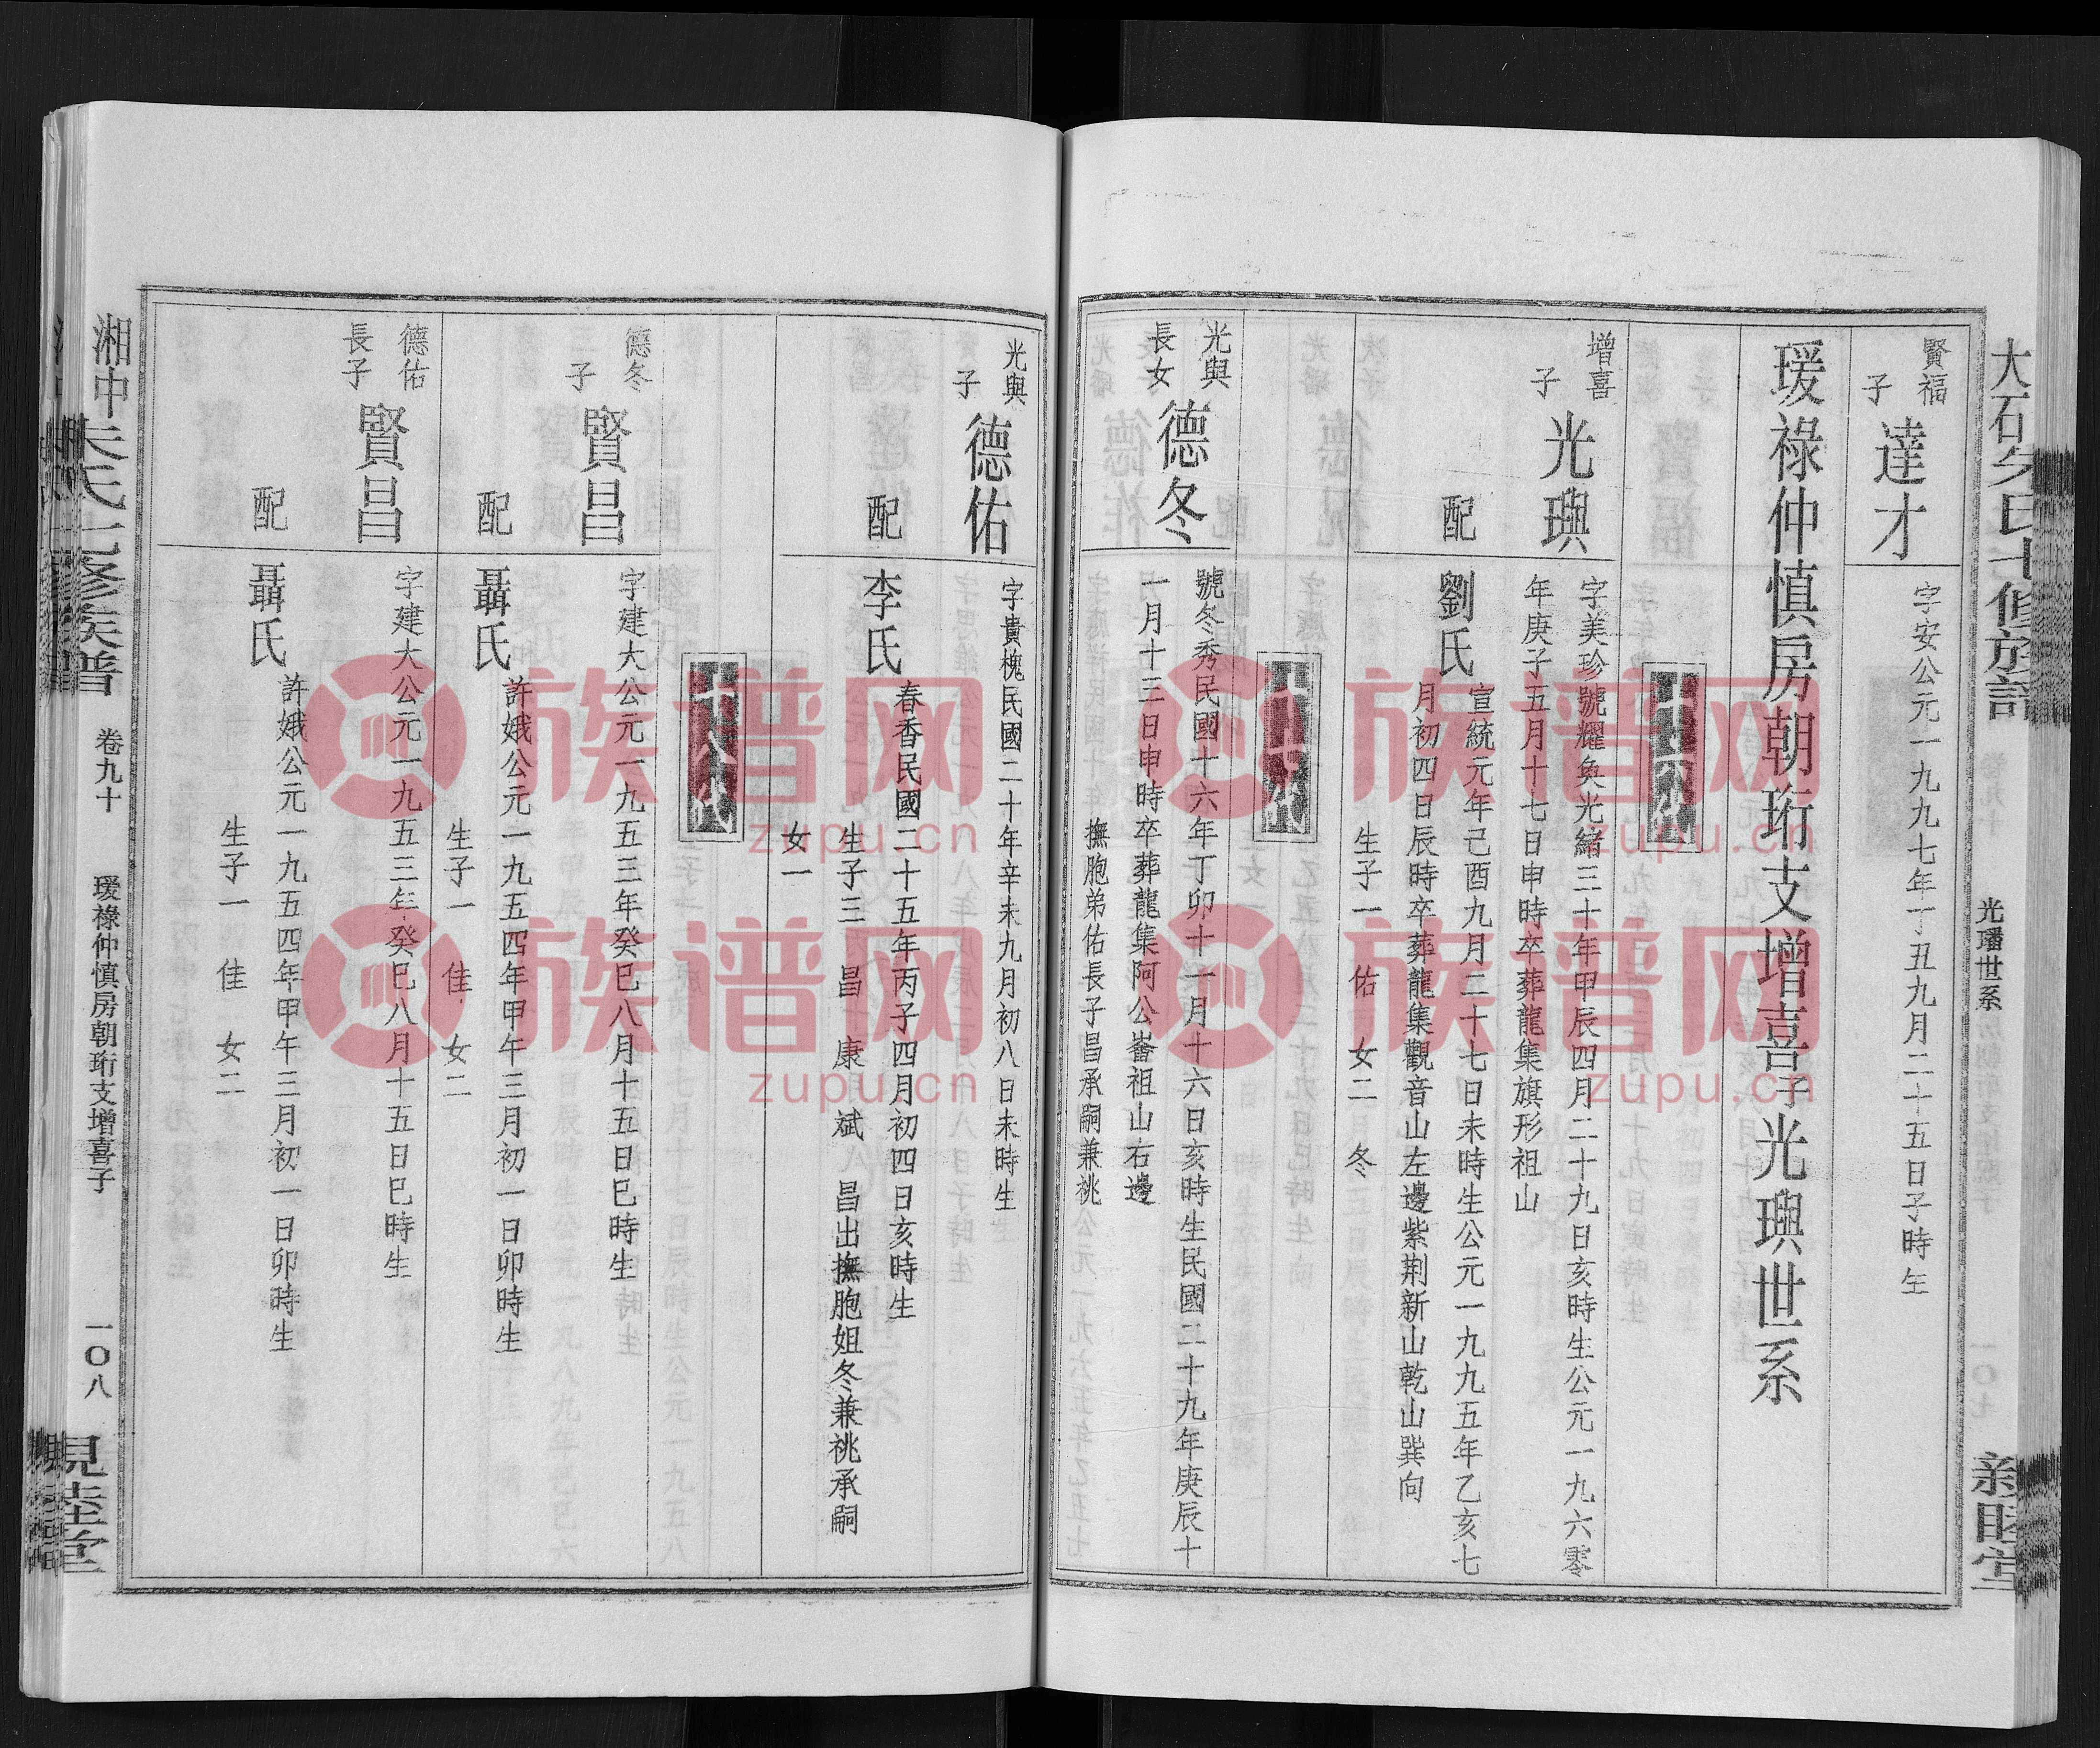 光璠世系
賢福
子
達才
字安公元一九九七年丁丑九月二十五日子時生
瑗祿仲慎房朝珩支增喜子光璵世系
增喜
子
光璵
字美珍號耀奐光緒三十年甲辰四月二十九日亥時生公元一九六零
年庚子五月十七日申時卒葬龍集旗形祖山
配
劉氏
宣統元年己酉九月二十七日未時生公元一九九五年乙亥七
月初四日辰時卒葬龍集觀音山左邊紫荆新山乾山巽向
生子一 佑 女二 冬
光與
長女
德冬
號冬秀民國十六年丁卯十一月十六日亥時生民國二十九年庚辰十
一月十三日申時卒葬龍集阿公崙祖山右邊
撫胞弟佑長子昌承嗣兼祧
光與
子
德佑
字貴槐民國二十年辛未九月初八日未時生
配
李氏
春香民國二十五年丙子四月初四日亥時生
生子三 昌 康 斌 昌出撫胞姐冬兼祧承嗣
女一
德冬
子
賢昌
字建大公元一九五三年癸巳八月十五日巳時生
配
聶氏
許娥公元一九五四年甲午三月初一日卯時生
生子一 佳 女二
德佑
長子
賢昌
字建大公元一九五三年癸巳八月十五日巳時生
配
聶氏
許娥公元一九五四年甲午三月初一日卯時生
生子一 佳 女二
湘中
卷九十
瑗祿仲慎房朝珩支增喜子
一〇八
族谱网
zupu.cn
族谱网
zupu.cn
族谱网
zupu.cn
族谱网
zupu.cn